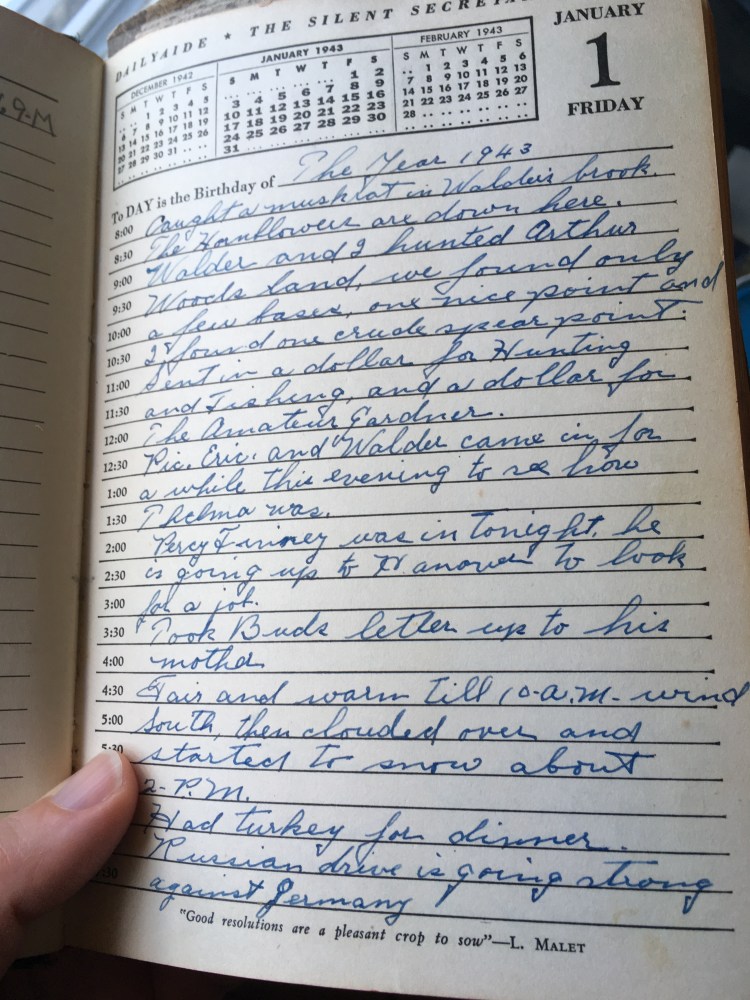 69.M
DAILYAIDE ★ THE SILENT SECRETA
JANUARY
1
FRIDAY
DECEMBER 1942
S M T W T F S
.. .. 1 2 3 4 5
6 7 8 9 10 11 12
13 14 15 16 17 18 19
20 21 22 23 24 25 26
27 28 29 30 31 .. ..
JANUARY 1943
S M T W T F S
.. .. .. .. .. 1 2
3 4 5 6 7 8 9
10 11 12 13 14 15 16
17 18 19 20 21 22 23
24 25 26 27 28 29 30
31 .. .. .. .. .. ..
FEBRUARY 1943
S M T W T F S
.. 1 2 3 4 5 6
7 8 9 10 11 12 13
14 15 16 17 18 19 20
21 22 23 24 25 26 27
28 .. .. .. .. .. ..
To DAY is the Birthday of The Year 1943
8:00 Caught a muskrat in Walder's brook.
8:30 The Hornblowers are down here.
9:00 Walder and I hunted Arthur
9:30 Woods land, we found only
10:00 a few bases, one nice point and
10:30 I found one crude spear point.
11:00 Sent in a dollar for Hunting
11:30 and Fishing, and a dollar for
12:00 The Amateur Gardner.
12:30 Pic. Eric. and Walder came in for
1:00 a while this evening to see how
1:30 Thelma was.
2:00 Percy Finney was in tonight, he
2:30 is going up to Hanover to look
3:00 for a job.
3:30 Took Buds letter up to his
4:00 mother
4:30 Fair and warm till 10-a.m- wind
5:00 South, then clouded over and
5:30 started to snow about
2-P.M.
Had turkey for dinner.
Russian drive is going strong
:30 against Germany
"Good resolutions are a pleasant crop to sow"—L. MALET